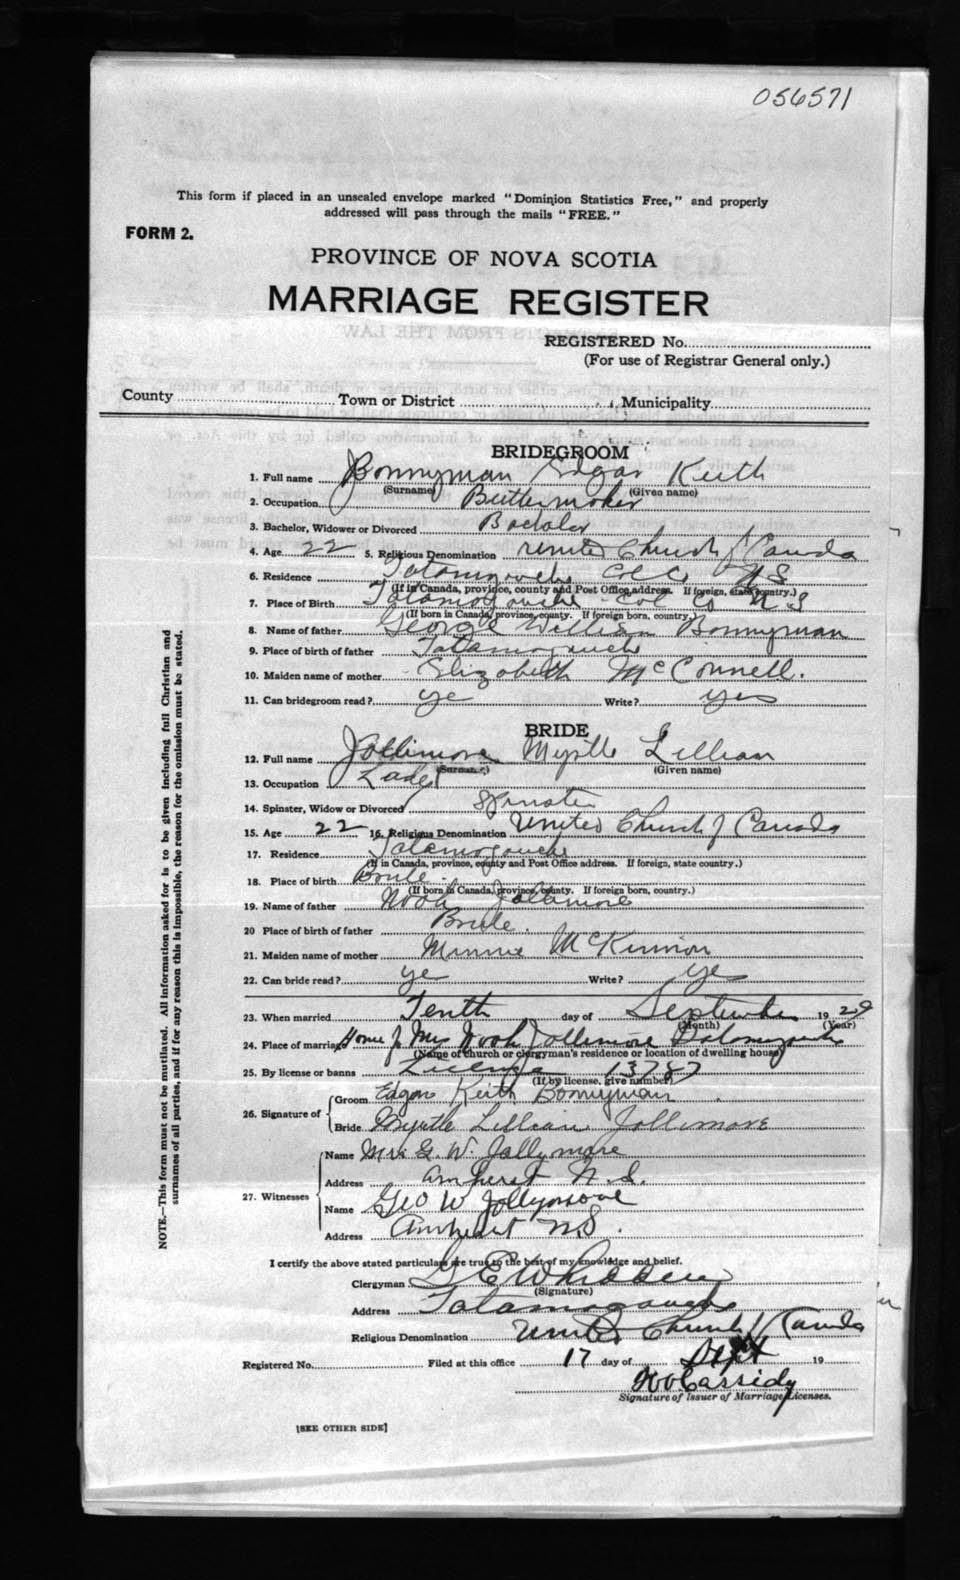 056571
This form if placed in an unsealed envelope marked "Dominion Statistics Free," and properly
addressed will pass through the mails "FREE."
FORM 2.
PROVINCE OF NOVA SCOTIA
MARRIAGE REGISTER
REGISTERED No.
(For use of Registrar General only.)
County Town or District Municipality
BRIDEGROOM
1. Full name Bonnyman Edgar Keith
(Surname) (Given name)
2. Occupation Buttermaker
3. Bachelor, Widower or Divorced Bachelor
4. Age 22 5. Religious Denomination United Church of Canada
6. Residence Tatamagouche Col Co N S
(If in Canada, province, county and Post Office address. If foreign, state country.)
7. Place of Birth Tatamagouche Col Co N S
(If born in Canada, province, county. If foreign born, country.)
8. Name of father George William Bonnyman
9. Place of birth of father Tatamagouche
10. Maiden name of mother Elizabeth McConnell.
11. Can bridegroom read? ye Write? yes
BRIDE
12. Full name Jollimore Myrtle Lillian
(Surname) (Given name)
13. Occupation Lady
14. Spinster, Widow or Divorced Spinster
15. Age 22 16. Religious Denomination United Church of Canada
17. Residence Tatamagouche
(If in Canada, province, county and Post Office address. If foreign, state country.)
18. Place of birth Brule.
(If born in Canada, province, county. If foreign born, country.)
19. Name of father Noah Jollimore
20 Place of birth of father Brule.
21. Maiden name of mother Minnie McKinnon
22. Can bride read? ye Write? ye
23. When married Tenth day of September 19 29
(Month) (Year)
24. Place of marriage Home of Mrs Noah Jollimore Tatamagouche
(Name of church or clergyman's residence or location of dwelling house)
25. By license or banns License 13787
(If by license, give number)
26. Signature of Groom Edgar Keith Bonnyman
Bride Myrtle Lillian Jollimore
27. Witnesses Name Mrs G. W. Jollymore
Address Amherst N.S.
Name Geo W Jollymore
Address Amherst NS.
I certify the above stated particulars are true to the best of my knowledge and belief.
Clergyman G E Whidden
(Signature)
Address Tatamagouche
Religious Denomination United Church of Canada
Registered No. Filed at this office 17 day of Sept 19
Cassidy
Signature of Issuer of Marriage Licenses.
[SEE OTHER SIDE]
NOTE.—This form must not be mutilated. All information asked for is to be given including full Christian and
surnames of all parties, and if for any reason this is impossible, the reason for the omission must be stated.